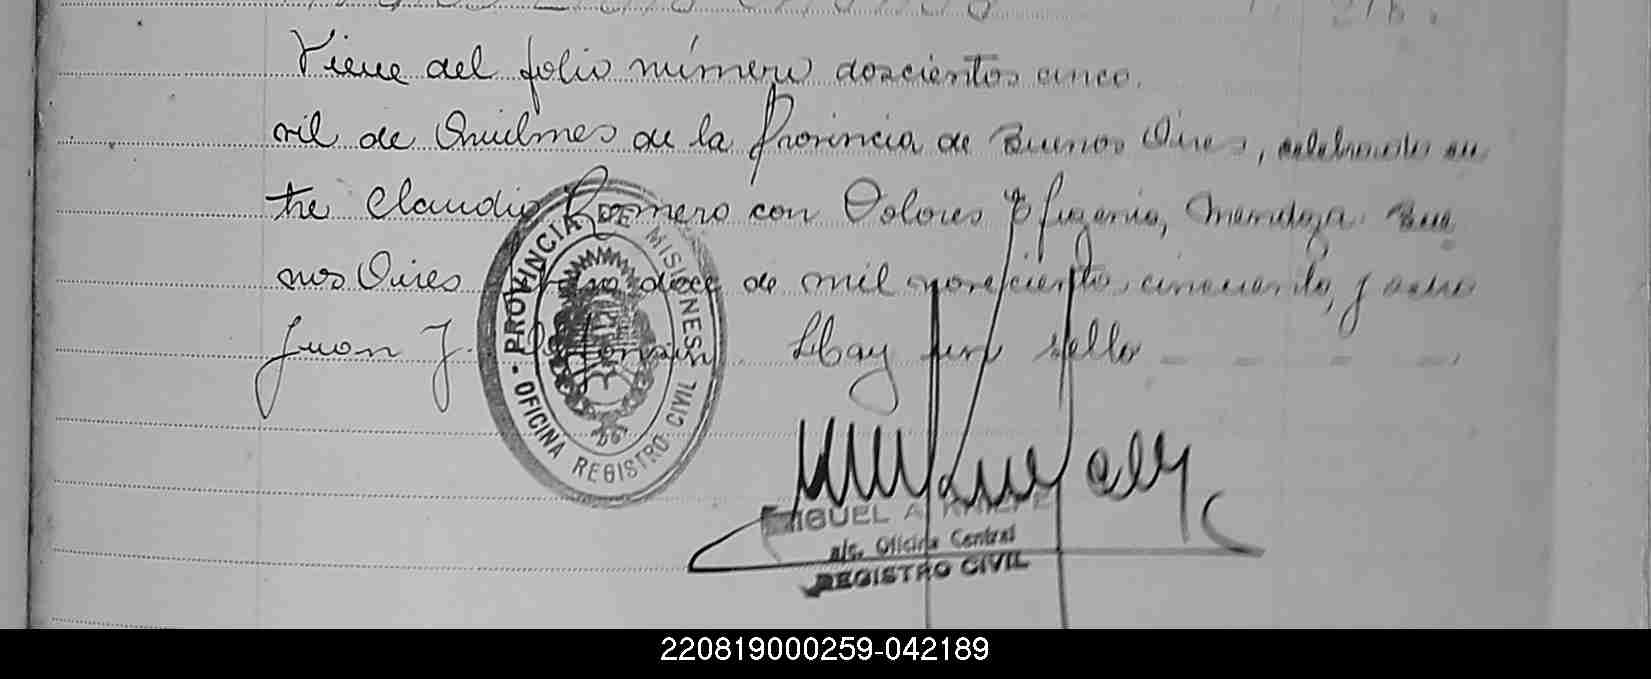 Viene del folio número doscientos cinco.
vil de Quilmes de la Provincia de Buenos Aires, celebrado en
tre Claudio Romero con Dolores Efigenia, Mendoza. Bue
nos Aires doce de mil novecientos cincuenta y ocho
Juan J. Hay un sello
PROVINCIA DE MISIONES
OFICINA REGISTRO CIVIL
MIGUEL A.
a/c. Oficina Central
REGISTRO CIVIL
220819000259-042189